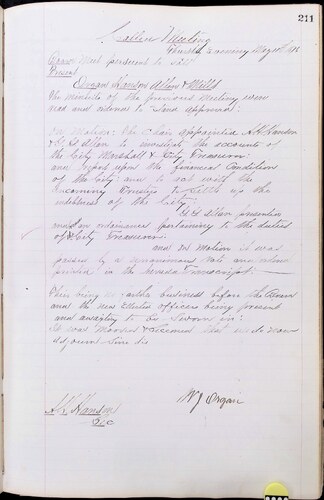 211
Called Meeting
Thursday Evening May
Board Met pursuant to call
Present
Organ Hanson Allen & Mills
The minutes of the previous Meeting were
read and ordered to Stand approved:
On Motion The Chair appointed A K Hanson
& Allen to investigate the accounts of
the City Marshall & City Treasurer
and report upon the financial Condition
of the City and to wait with the
Incoming to Settle up the
of the City.
Allen presented
an ordinance pertaining to the duties
of City Treasurer
and on Motion it was
passed by a unanimous vote and ordered
printed in the Nevada Transcript:
There being no further business before the Board
and the new Elected officers being present
and awaiting to be Sworn in:
It was Moved & Second that we do now
adjourn Sine die
W J Organ
A K Hanson
Sec